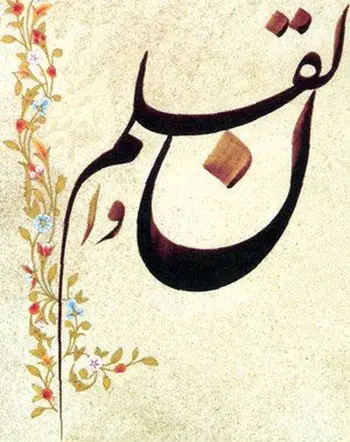 ن وا
لقلم